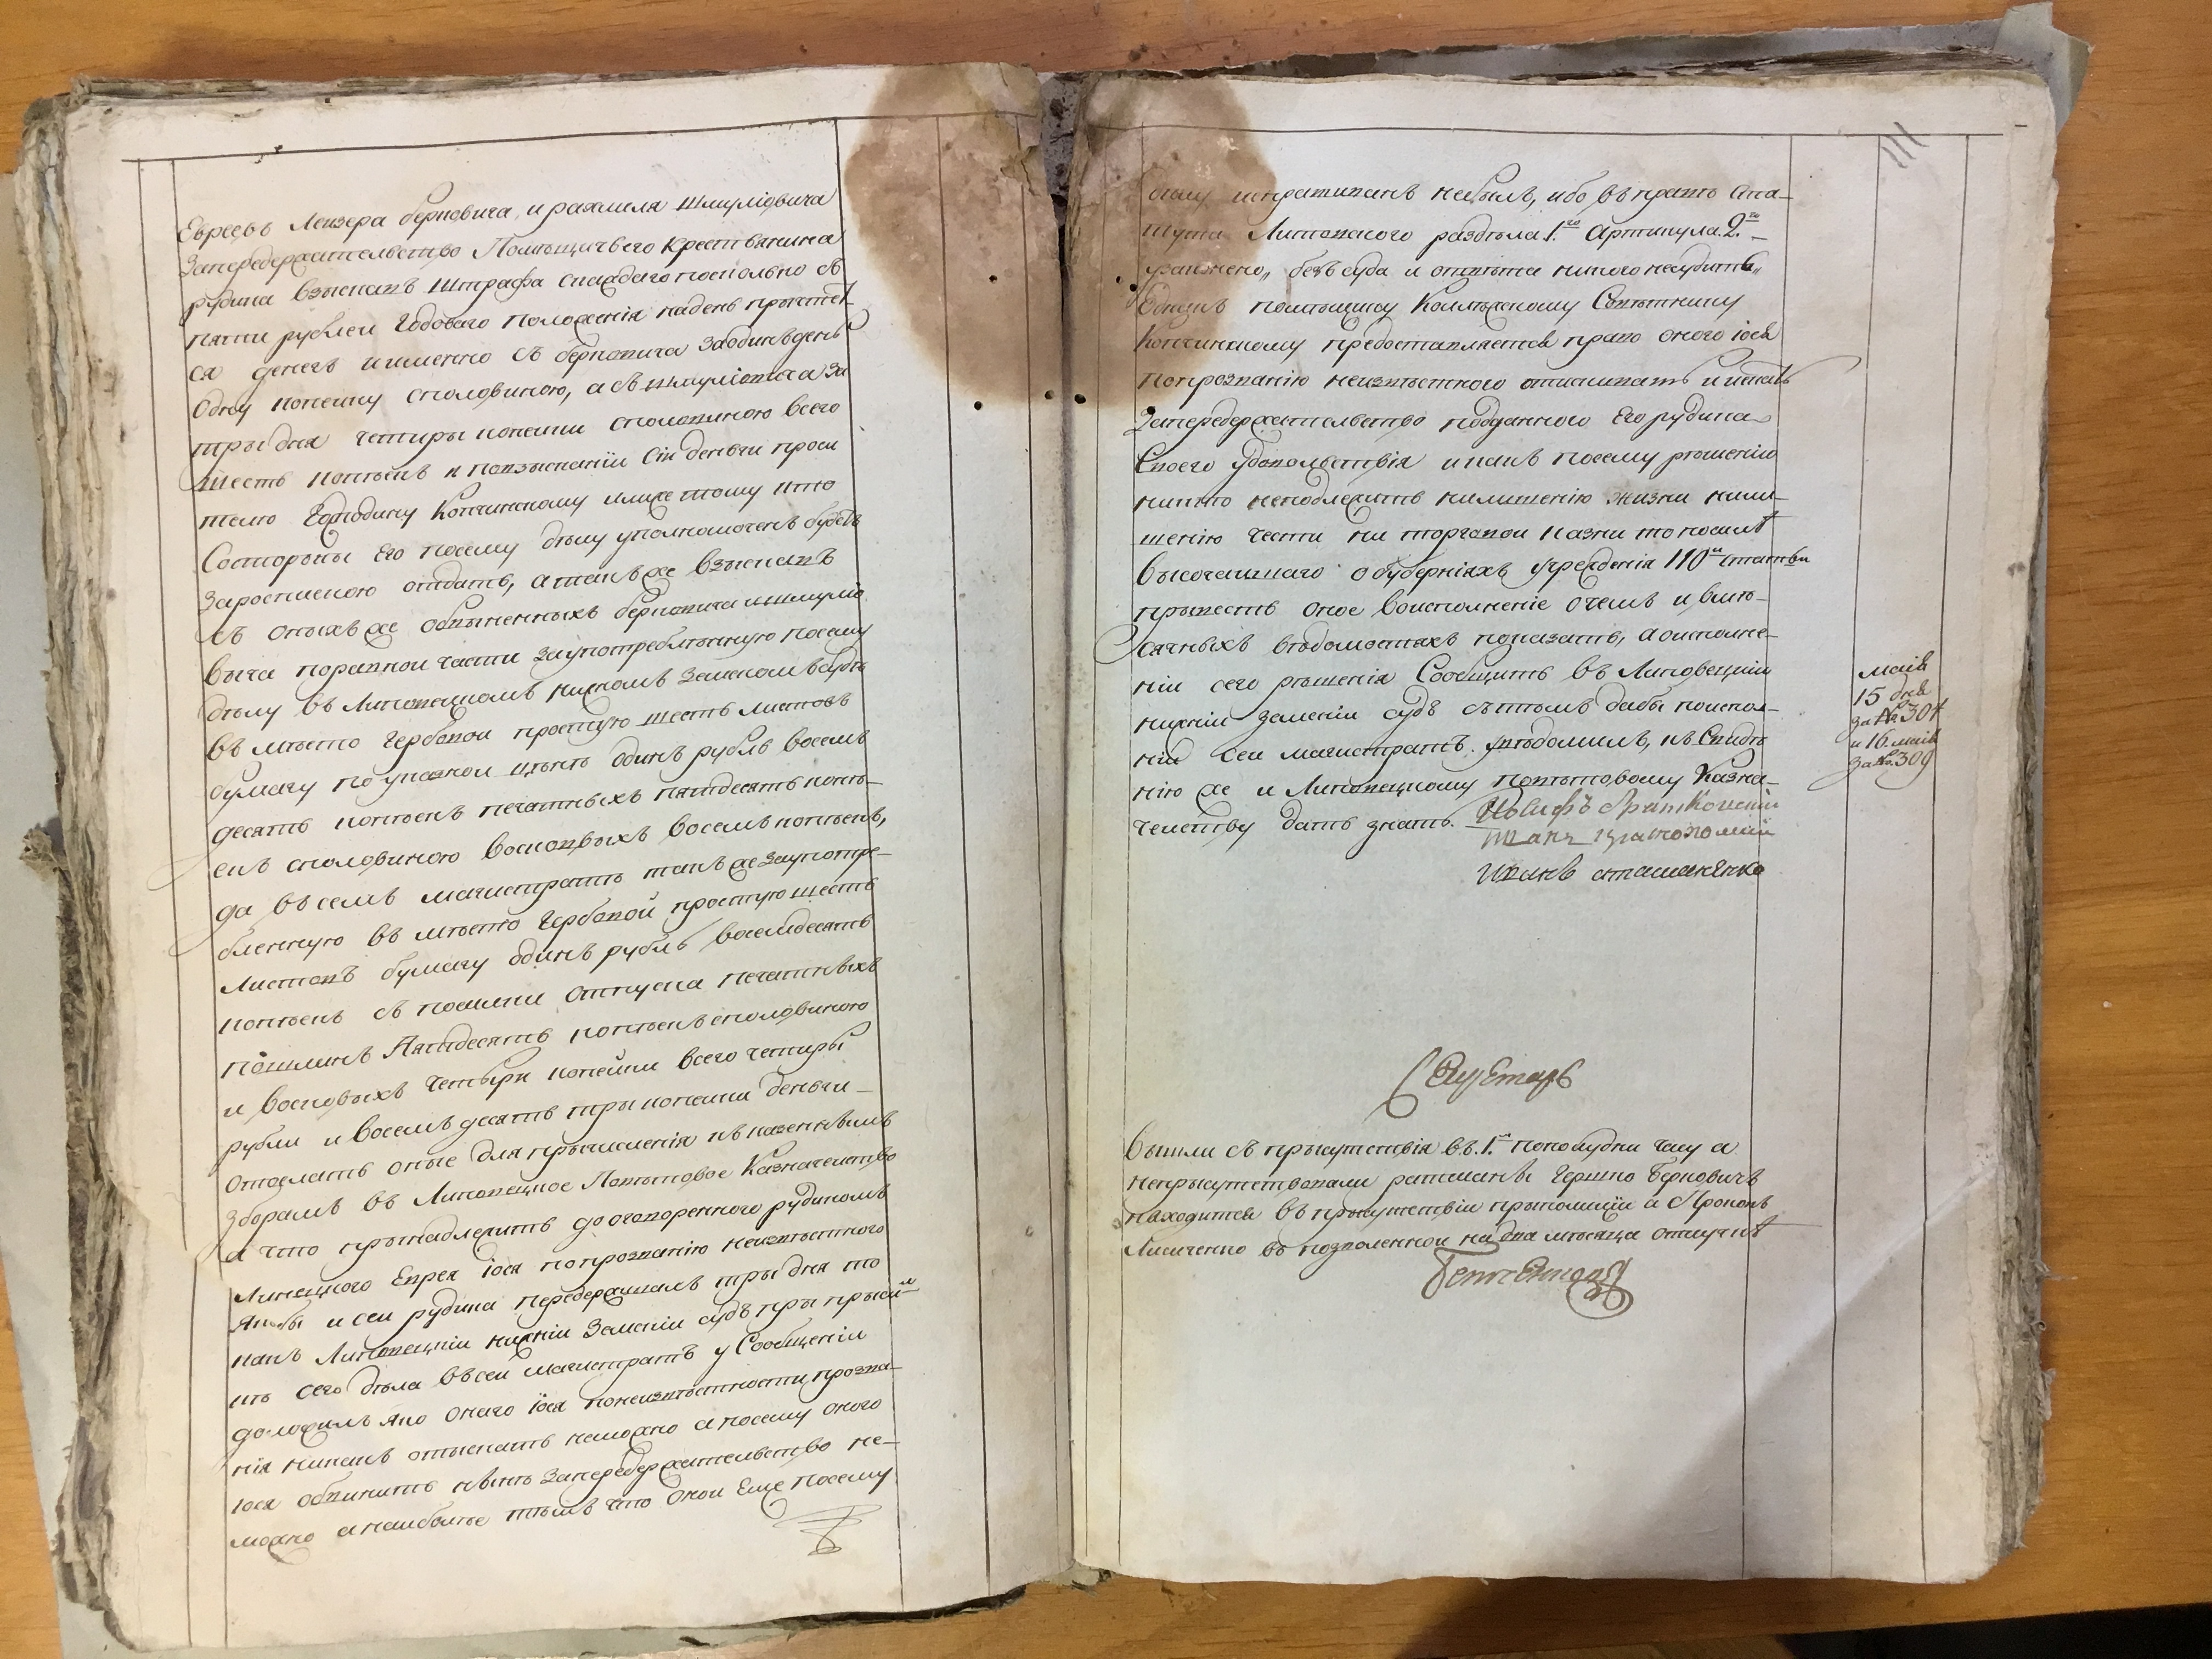 Евреевъ Лейзера берковича, и рахмиля шмулiовича
Запередержательство Помѣщичьего крестьянина
рудика взыскать штрафа скаждого посколько съ
пяти рублей Годового положенiя надень прычтет
ся денегъ иименно съ берковича Заодинъ день
Одну копеику споловиною, а съ шмулiовича за
три дня четыры копеики споловиною всего
шесть копѣекъ и повзысканiи Сiи деньги проси
телю Господину Копчинскому илиже тому кто
Состороны Его посему дѣлу уполномоченъ будетъ
Зароспискою отдать, а такъ же взыскать
съ оныхъ же обвыненныхъ берковича и шмулiо
выча поравной части Заупотребленную посему
дѣлу въ Липовецкомъ нижномъ Земскомъ судѣ
въ мѣсто гербовой простую шесть листовъ
бумагу по указной цѣнѣ одинъ рубль восемъ
десятъ копѣекъ печатныхъ пятдесятъ копѣ-
екъ споловиною восковыхъ восемъ копѣекъ,
да въ семъ магистратѣ такъ же Заупотре-
бленную въ мѣсто гербовой простую шесть
Листовъ бумагу одинъ рубль восемдесятъ
копѣекъ съ посылки отпуска печатныхъ
пошлинъ Пятдесятъ копѣекъ споловиною
и восковыхъ четыри копейки всего четыры
рубли и восемъ десятъ три копеики деньги-
отослать оные для прычисленiя къ казеннымъ
Зборамъ въ Липовецкое Повѣтовое Казначейство
а что прынадлежитъ до оговоренного рудикомъ
Линецкого Еврея iося попрозванiю неизвѣстного
якобы и сеи рудика передержывалъ тры дня то
какъ Липовецкiи нижнiи Земскiи судъ пры прысил
кѣ сего дѣла въ сеи магистратъ у Сообщенiи
доложилъ яко оного iося понеизвѣстности прозва-
нiя никакъ отыскать неможно а посему оного
iося обвинить нынѣ Запередержательство не-
можно а наиболѣе тѣмъ что онои Еще посему
дѣлу испрашиванъ небылъ, ибо въ правѣ Ста-
тута Литовского раздѣла 1.го Артикула 2.го
изражено „ безъ суда и отвѣта никого несудить „
Однакъ помѣщику Коллежскому Совѣтнику
Копчинскому предоставляется право оного iося
попрозванiю неизвѣстного отискивать и искать
Запередержательство подданного Его рудика
Своего удовольствiя и какъ посему рѣшенiю
никто неподлежитъ нилишенiю жизни нили-
шенiю чести ни торговои казни то посилѣ
Высочайшаго о губернiяхъ учрежденiя 110й статьи
прывесть оное воисполненiе о чемъ и вмѣ-
сячныхъ вѣдомостяхъ показать, а оисполне-
нiи сего рѣшенiя Сообщить въ Липовецкiи
нижнiи Земскiи судъ сътѣмъ дабы поиспол-
нiи сеи магистратъ. увѣдомилъ, къ Свидѣ
нiю же и Липовецкому повѣтовому Казна-
чейству дать знать.
маiя
15 дня
за № 304
и 16. маiя
за № 309
Иванъ сташенѣнко
Секретарь
Вышли съ прысутствiя въ 1.м пополудни часу а
неприсутствовали ратманы Гершко Берковичъ
находится въ прысутствiи прытомскiи а Прокопъ
Лисиченко въ позволенной на два мѣсяца отлучкѣ